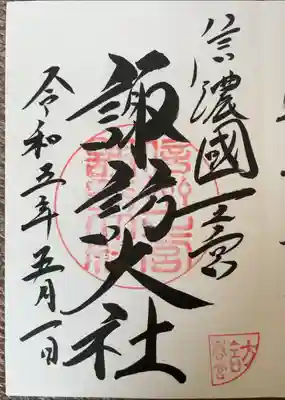 信濃國一之宮
諏訪大社
令和元年五月一日